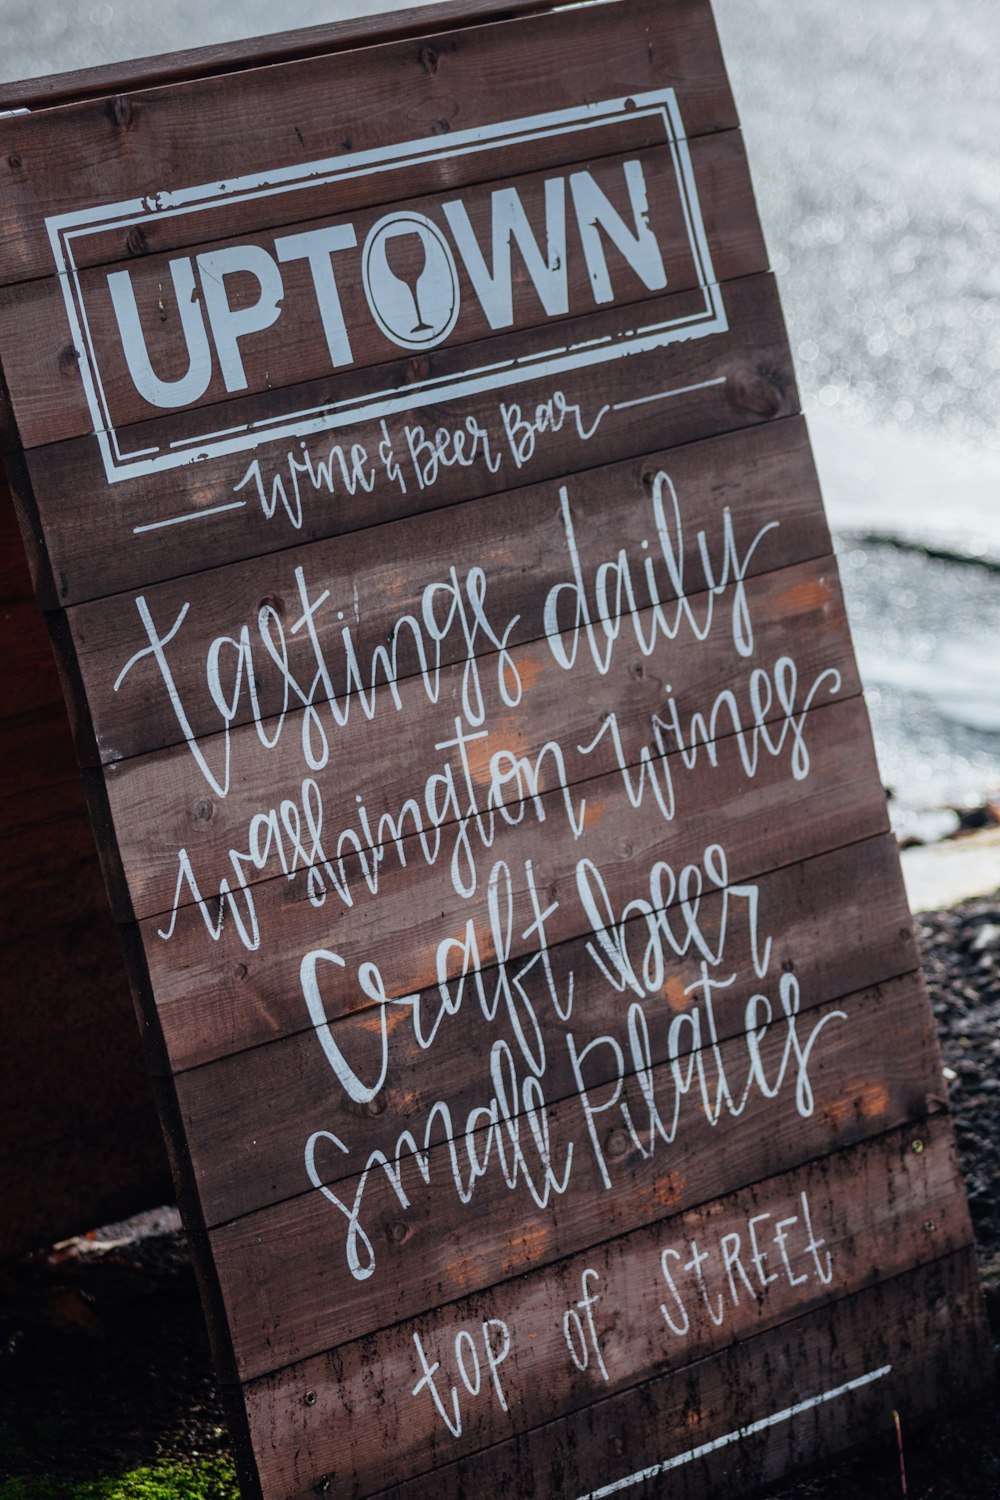 UPTOWN
Wine & Beer Bar
tastings daily
washington wines
Craft beer
small plates
top of STREET